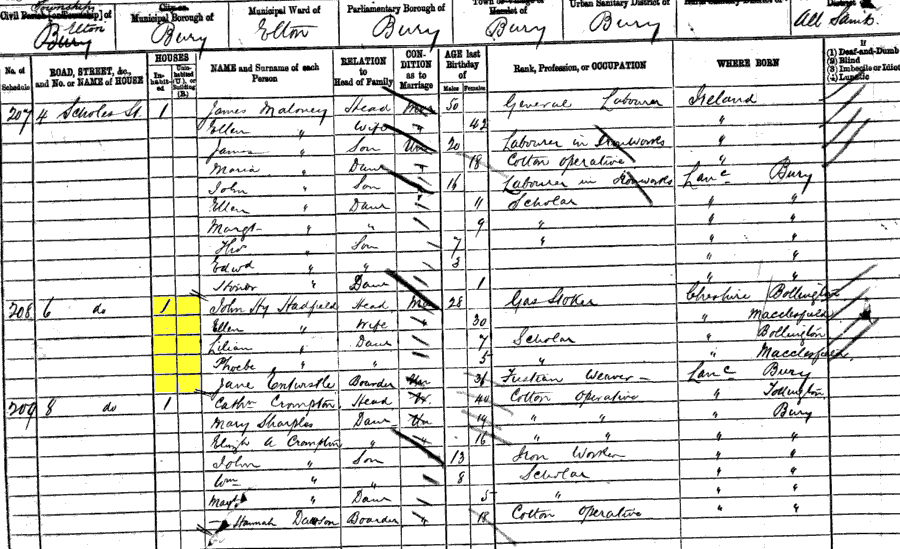 Township
Civil Parish [or Township] of
Elton
Bury
City or
Municipal Borough of
Bury
Municipal Ward of
Elton
Parliamentary Borough of
Bury
Town or Village of
Bury
Urban Sanitary District of
Bury
Rural Sanitary District of
All Saints
No. of Schedule
ROAD, STREET, &c., and No. or NAME of HOUSE
HOUSES
Inhabited
Uninhabited (U.), or Building (B.)
NAME and Surname of each Person
RELATION to Head of Family
CONDITION as to Marriage
AGE last Birthday of
Males
Females
Rank, Profession, or OCCUPATION
WHERE BORN
If
(1) Deaf-and-Dumb
(2) Blind
(3) Imbecile or Idiot
(4) Lunatic
207 4 Scholes St. 1 James Maloney Head Mar 50 General Labourer Ireland
Ellen " Wife " 42 "
James " Son Un 20 Labourer in Ironworks "
Maria " Daur 18 Cotton Operative "
John " Son 16 Labourer in Ironworks Lanc Bury
Ellen " Daur 11 Scholar " "
Margt " " 9 " " "
" Son 7 " " "
Edwd " " 3 " "
" Daur 1 " "
208 6 do 1 John Hy Hadfield Head Mar 28 Gas Stoker Cheshire Bollington
Ellen " Wife " 30 " Macclesfield
Lilian " Daur 7 Scholar " Bollington
Phoebe " " 5 " " Macclesfield
Jane Entwistle Boarder Un 36 Fustian Weaver Lanc Bury
209 8 do 1 Cathn Crompton Head 40 Cotton Operative " Tottington
Mary Sharples Daur Un 19 " " " Bury
Elizh A Crompton " " 16 " " " "
John " Son 13 Iron Worker " "
Wm " " 8 Scholar " "
Mayt " Daur 5 " " "
Hannah Dawson Boarder " 18 Cotton Operative " "